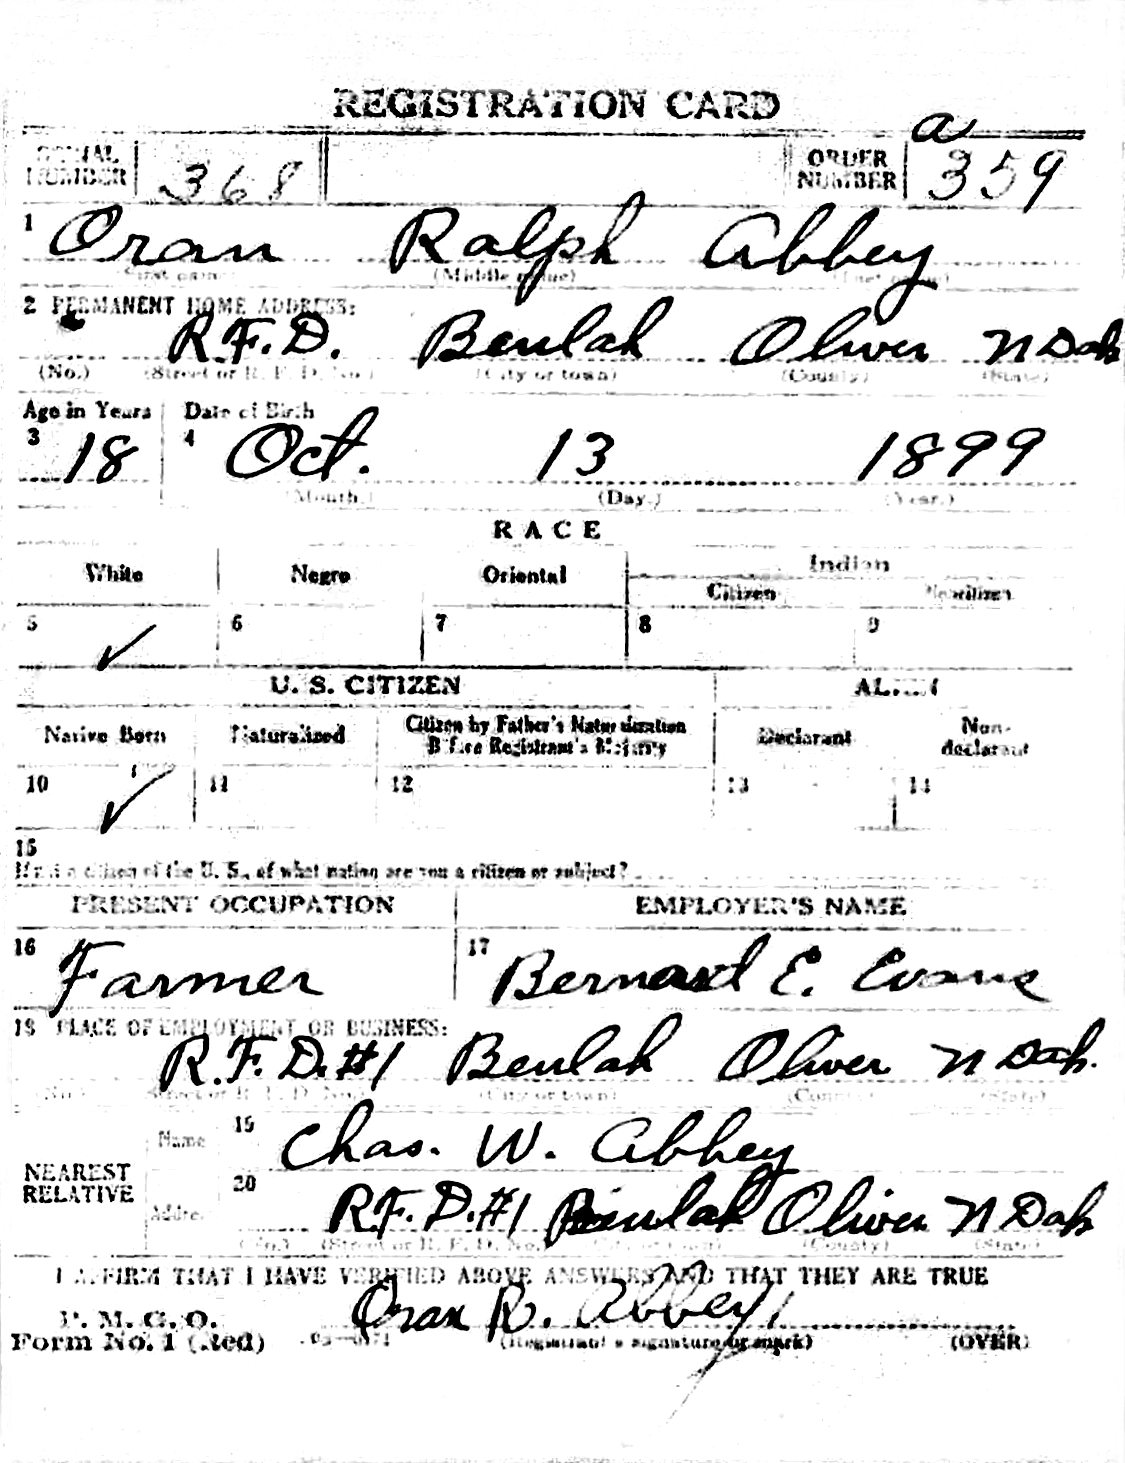 REGISTRATION CARD
SERIAL NUMBER 368 ORDER NUMBER a 359
1 Oran Ralph Abbey
(First name) (Middle name) (Last name)
2 PERMANENT HOME ADDRESS:
R.F.D. Beulah Oliver N Dak
(No.) (Street or R. F. D. No.) (City or town) (County) (State)
Age in Years Date of Birth
3 18 4 Oct. 13 1899
(Month.) (Day.) (Year.)
RACE
White Negro Oriental Indian
Citizen Noncitizen
5 ✓ 6 7 8 9
U. S. CITIZEN ALIEN
Native Born Naturalized Citizen by Father's Naturalization Before Registrant's Majority Declarant Non-declarant
10 ✓ 11 12 13 14
15
If not a citizen of the U. S., of what nation are you a citizen or subject?
PRESENT OCCUPATION EMPLOYER'S NAME
16 Farmer 17 Bernard E. Evans
18 PLACE OF EMPLOYMENT OR BUSINESS:
R.F.D.#1 Beulah Oliver N Dak.
(No.) (Street or R. F. D. No.) (City or town) (County) (State)
NEAREST RELATIVE
Name 19 Chas. W. Abbey
Address 20 R.F.D.#1 Beulah Oliver N Dak
(No.) (Street or R. F. D. No.) (City or town) (County) (State)
I AFFIRM THAT I HAVE VERIFIED ABOVE ANSWERS AND THAT THEY ARE TRUE
P. M. G. O.
Form No. 1 (Red) Oran R. Abbey
(Registrant's signature or mark) (OVER)